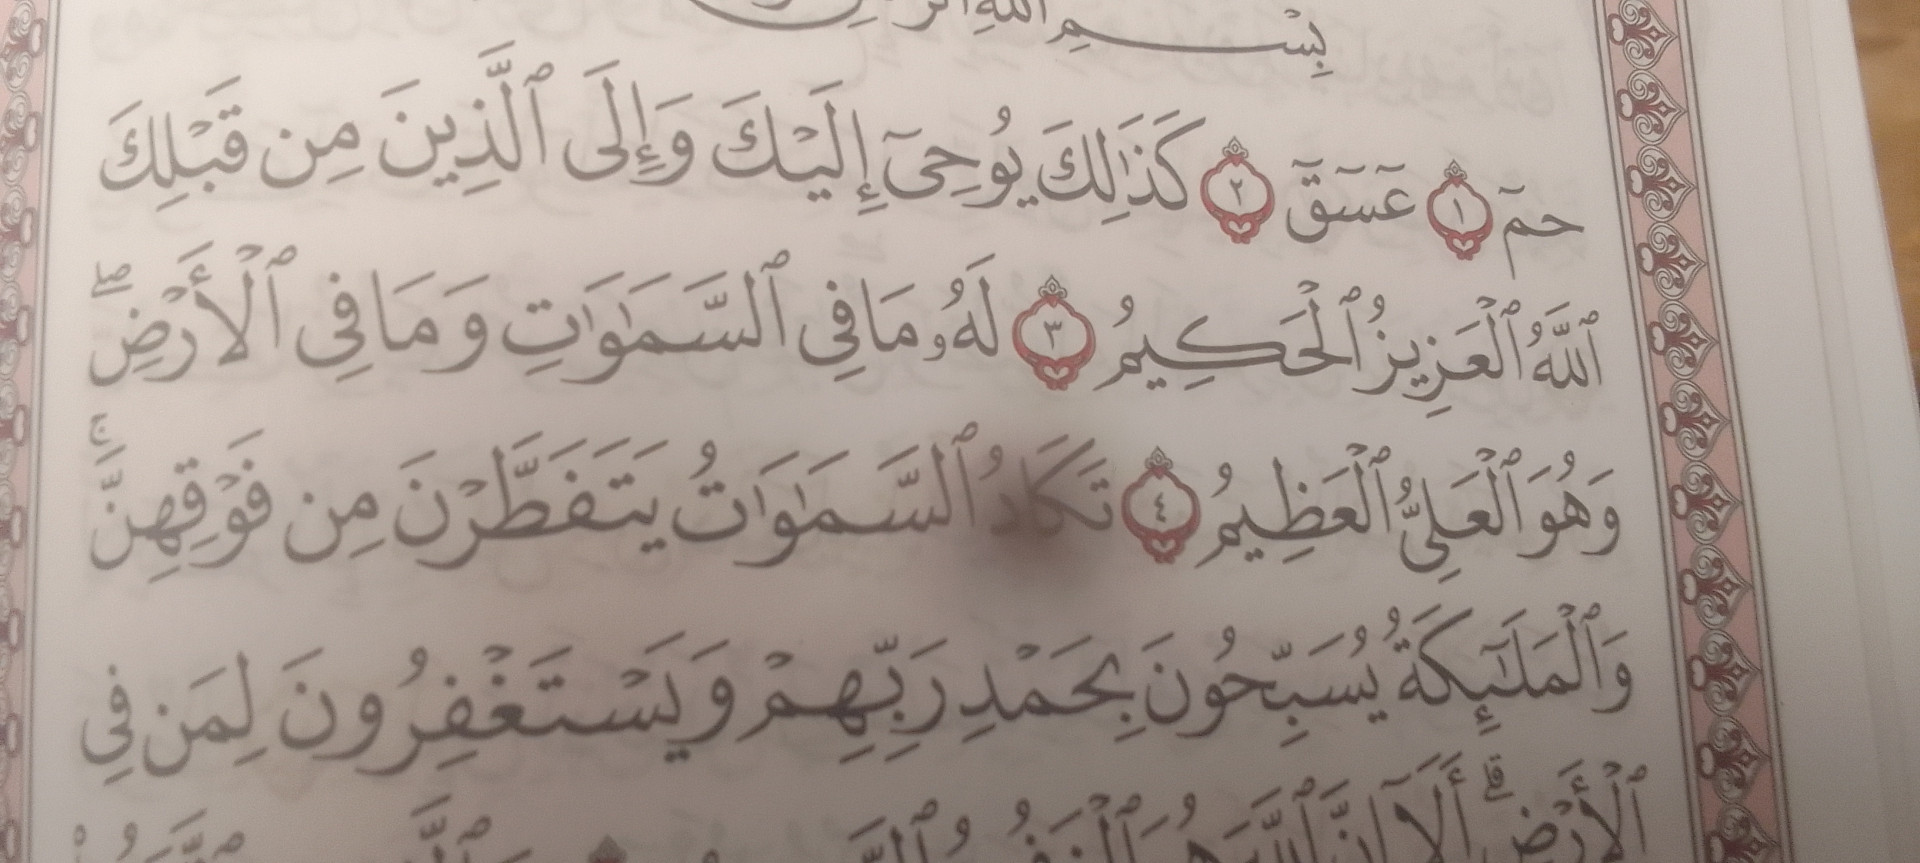 بِسْمِ ٱللَّهِ
حمٓ ١ عٓسٓقٓ ٢ كَذَٰلِكَ يُوحِىٓ إِلَيْكَ وَإِلَى ٱلَّذِينَ مِن قَبْلِكَ
ٱللَّهُ ٱلْعَزِيزُ ٱلْحَكِيمُ ٣ لَهُۥ مَا فِى ٱلسَّمَٰوَٰتِ وَمَا فِى ٱلْأَرْضِۖ
وَهُوَ ٱلْعَلِىُّ ٱلْعَظِيمُ ٤ تَكَادُ ٱلسَّمَٰوَٰتُ يَتَفَطَّرْنَ مِن فَوْقِهِنَّۚ
وَٱلْمَلَٰٓئِكَةُ يُسَبِّحُونَ بِحَمْدِ رَبِّهِمْ وَيَسْتَغْفِرُونَ لِمَن فِى
ٱلْأَرْضِۗ أَلَآ إِنَّ ٱللَّهَ هُوَ ٱلْغَفُورُ